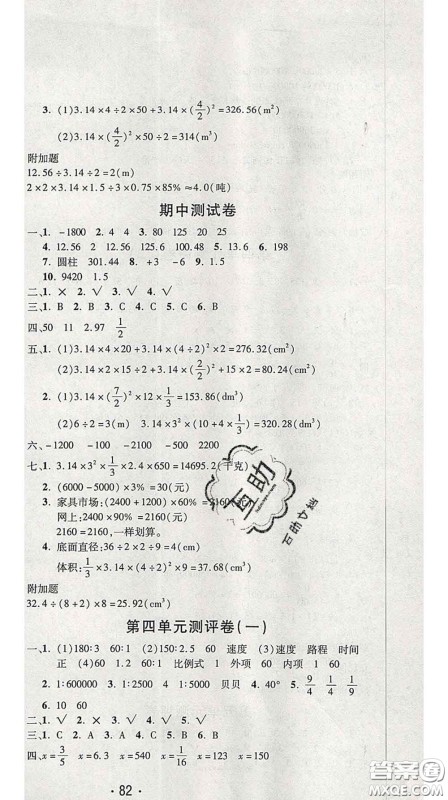 3. (1)3.14×4÷2×50+3.14×(4/2)²=326.56(m²)
(2)3.14×(4/2)²×50÷2=314(m³)
附加题
12.56÷3.14÷2=2(m)
2×2×3.14×1.5÷3×0.75×85%≈4.0(吨)
期中测试卷
一、1. -1800 2. 4 4 3. 80 125 20 25
4. 12.56 2 125.6 100.48 5. 13.6 6. 198
7. 圆柱 301.44 8. 2 9. 1.5
10. 9420 1.5
二、1. × 2. √ 3. √ 4. √
三、1. B 2. B 3. C 4. C 5. C 6. B
四、50 11 2.97 1/2
五、1. (1)3.14×4×20+3.14×(4÷2)²×2=276.32(cm²)
(2)3.14×2×15÷2+3.14×(2÷2)²+2×15=80.24(cm²)
2. (1)3.14×(7/2)²×12×1/3=153.86(dm³)
(2)6÷2=3(cm) 3.14×3²×(10+9×1/3)
六、-1200 -100 -2100 -600
七、1. 3.14×3²×1/3×2×780=14695.2(千克)
2. (6000-5000)×3%=30(元)
3. 家具市场:(2400+1200)×60%=2160(元)
网上:2400×90%=2160(元)
2160=2160,一样划算。
4. 底面直径:36÷2÷9×2
体积:1/3×3.14×(4÷2)²×9
附加题
32.4÷(8+2)×8=25.92(cm³)
第四单元测评卷(一)
一、1. (1)180:3 60:1 (2)150:2.5 60:1 速度 (3)速度 路程 时间
正 (4)60 60:1 比例式 1 外项 60 内项
2. 1:600000 3. 1:25000000 贝贝 4. 40° 5. 9/4 1/4 4/9
6. 10 60
二、1. √ 2. √ 3. × 4. √ 5. √
三、1. B 2. C 3. C 4. A 5. C
四、x=3/5 x=6.3 x=540 x=1/16 x=123 x=150
· 82 ·
互助
答案圈
MXQE.COM